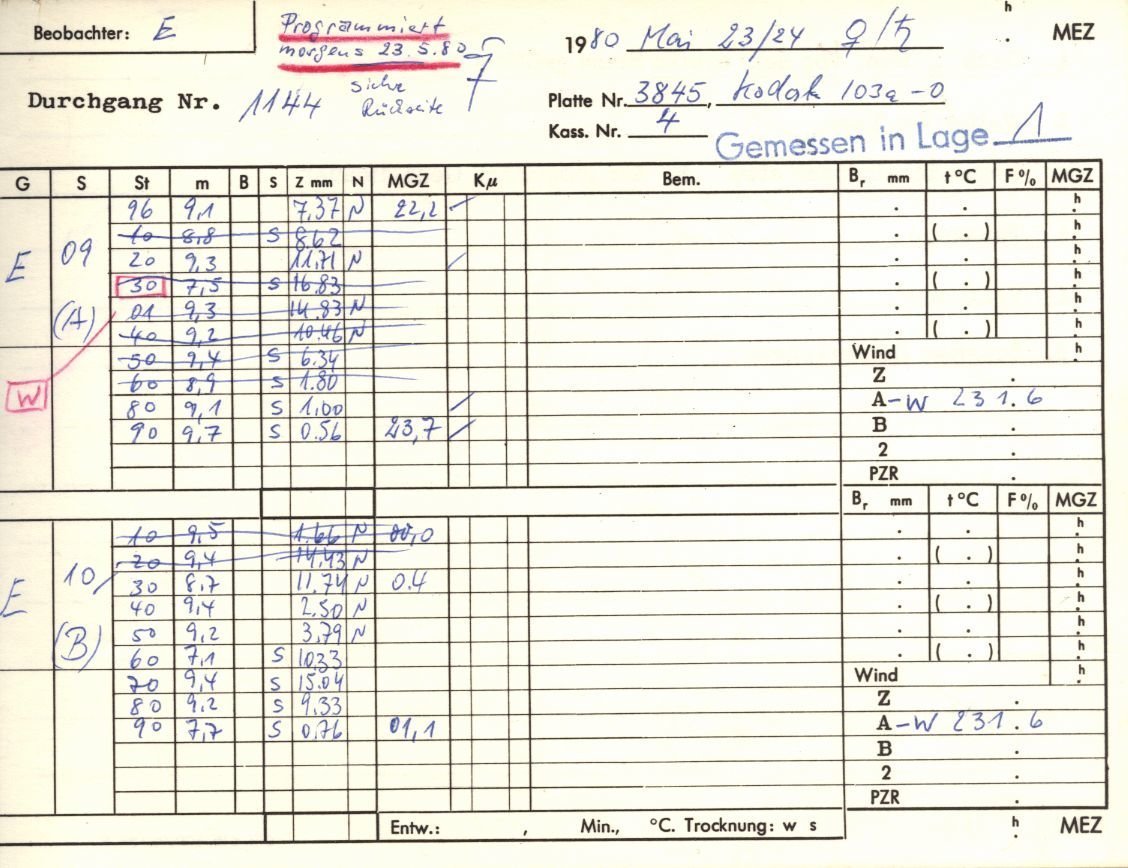 Beobachter: E
Programmiert
morgens 23.5.80
siehe
Rückseite
h
1980 Mai 23/24 ♀/♄ MEZ
Durchgang Nr. 1144
Platte Nr. 3845, Kodak 103a-0
Kass. Nr. 4
Gemessen in Lage 1
G S St m B S Z mm N MGZ Kμ Bem. Br mm t°C F% MGZ
E 09 (A)
W
96 9,1 7,37 N 22,2
10 8,8 S 8,62
20 9,3 11,71 N
30 7,5 S 16,83
01 9,3 14,83 N
40 9,2 10.46 N
50 9,4 S 6.34
60 8,9 S 1.80
80 9,1 S 1,00
90 9,7 S 0.56 23,7
( . )
( . )
( . )
Wind
Z .
A-W 231.6
B .
2 .
PZR .
Br mm t°C F% MGZ
E 10 (B)
10 9,5 1.66 N 00,0
20 9,4 14,43 N
30 8,7 11,74 N 0.4
40 9,4 2.50 N
50 9,2 3,79 N
60 7,1 S 10.33
70 9,4 S 15.04
80 9,2 S 9,33
90 7,7 S 0,76 01,1
( . )
( . )
( . )
Wind
Z .
A-W 231.6
B .
2 .
PZR .
Entw.: , Min., °C. Trocknung: w s h MEZ